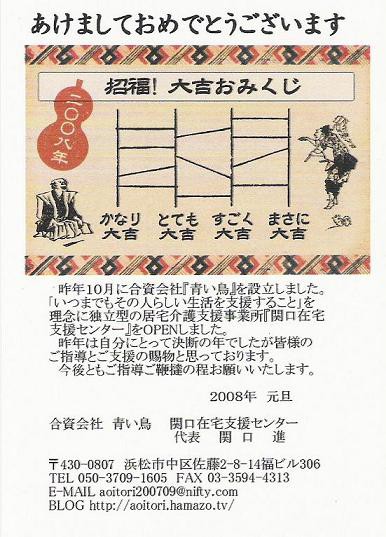 あけましておめでとうございます
招福！大吉おみくじ
二〇〇八年
かなり とても すごく まさに
大吉 大吉 大吉 大吉
昨年10月に合資会社『青い鳥』を設立しました。
「いつまでもその人らしい生活を支援すること」を
理念に独立型の居宅介護支援事業所『関口在宅
支援センター』をOPENしました。
昨年は自分にとって決断の年でしたが皆様の
ご指導とご支援の賜物と思っております。
今後ともご指導ご鞭撻の程お願いいたします。
2008年 元旦
合資会社 青い鳥 関口在宅支援センター
代表 関口 進
〒430-0807 浜松市中区佐藤2-8-14福ビル306
TEL 050-3709-1605 FAX 03-3594-4313
E-MAIL aoitori200709@nifty.com
BLOG http://aoitori.hamazo.tv/